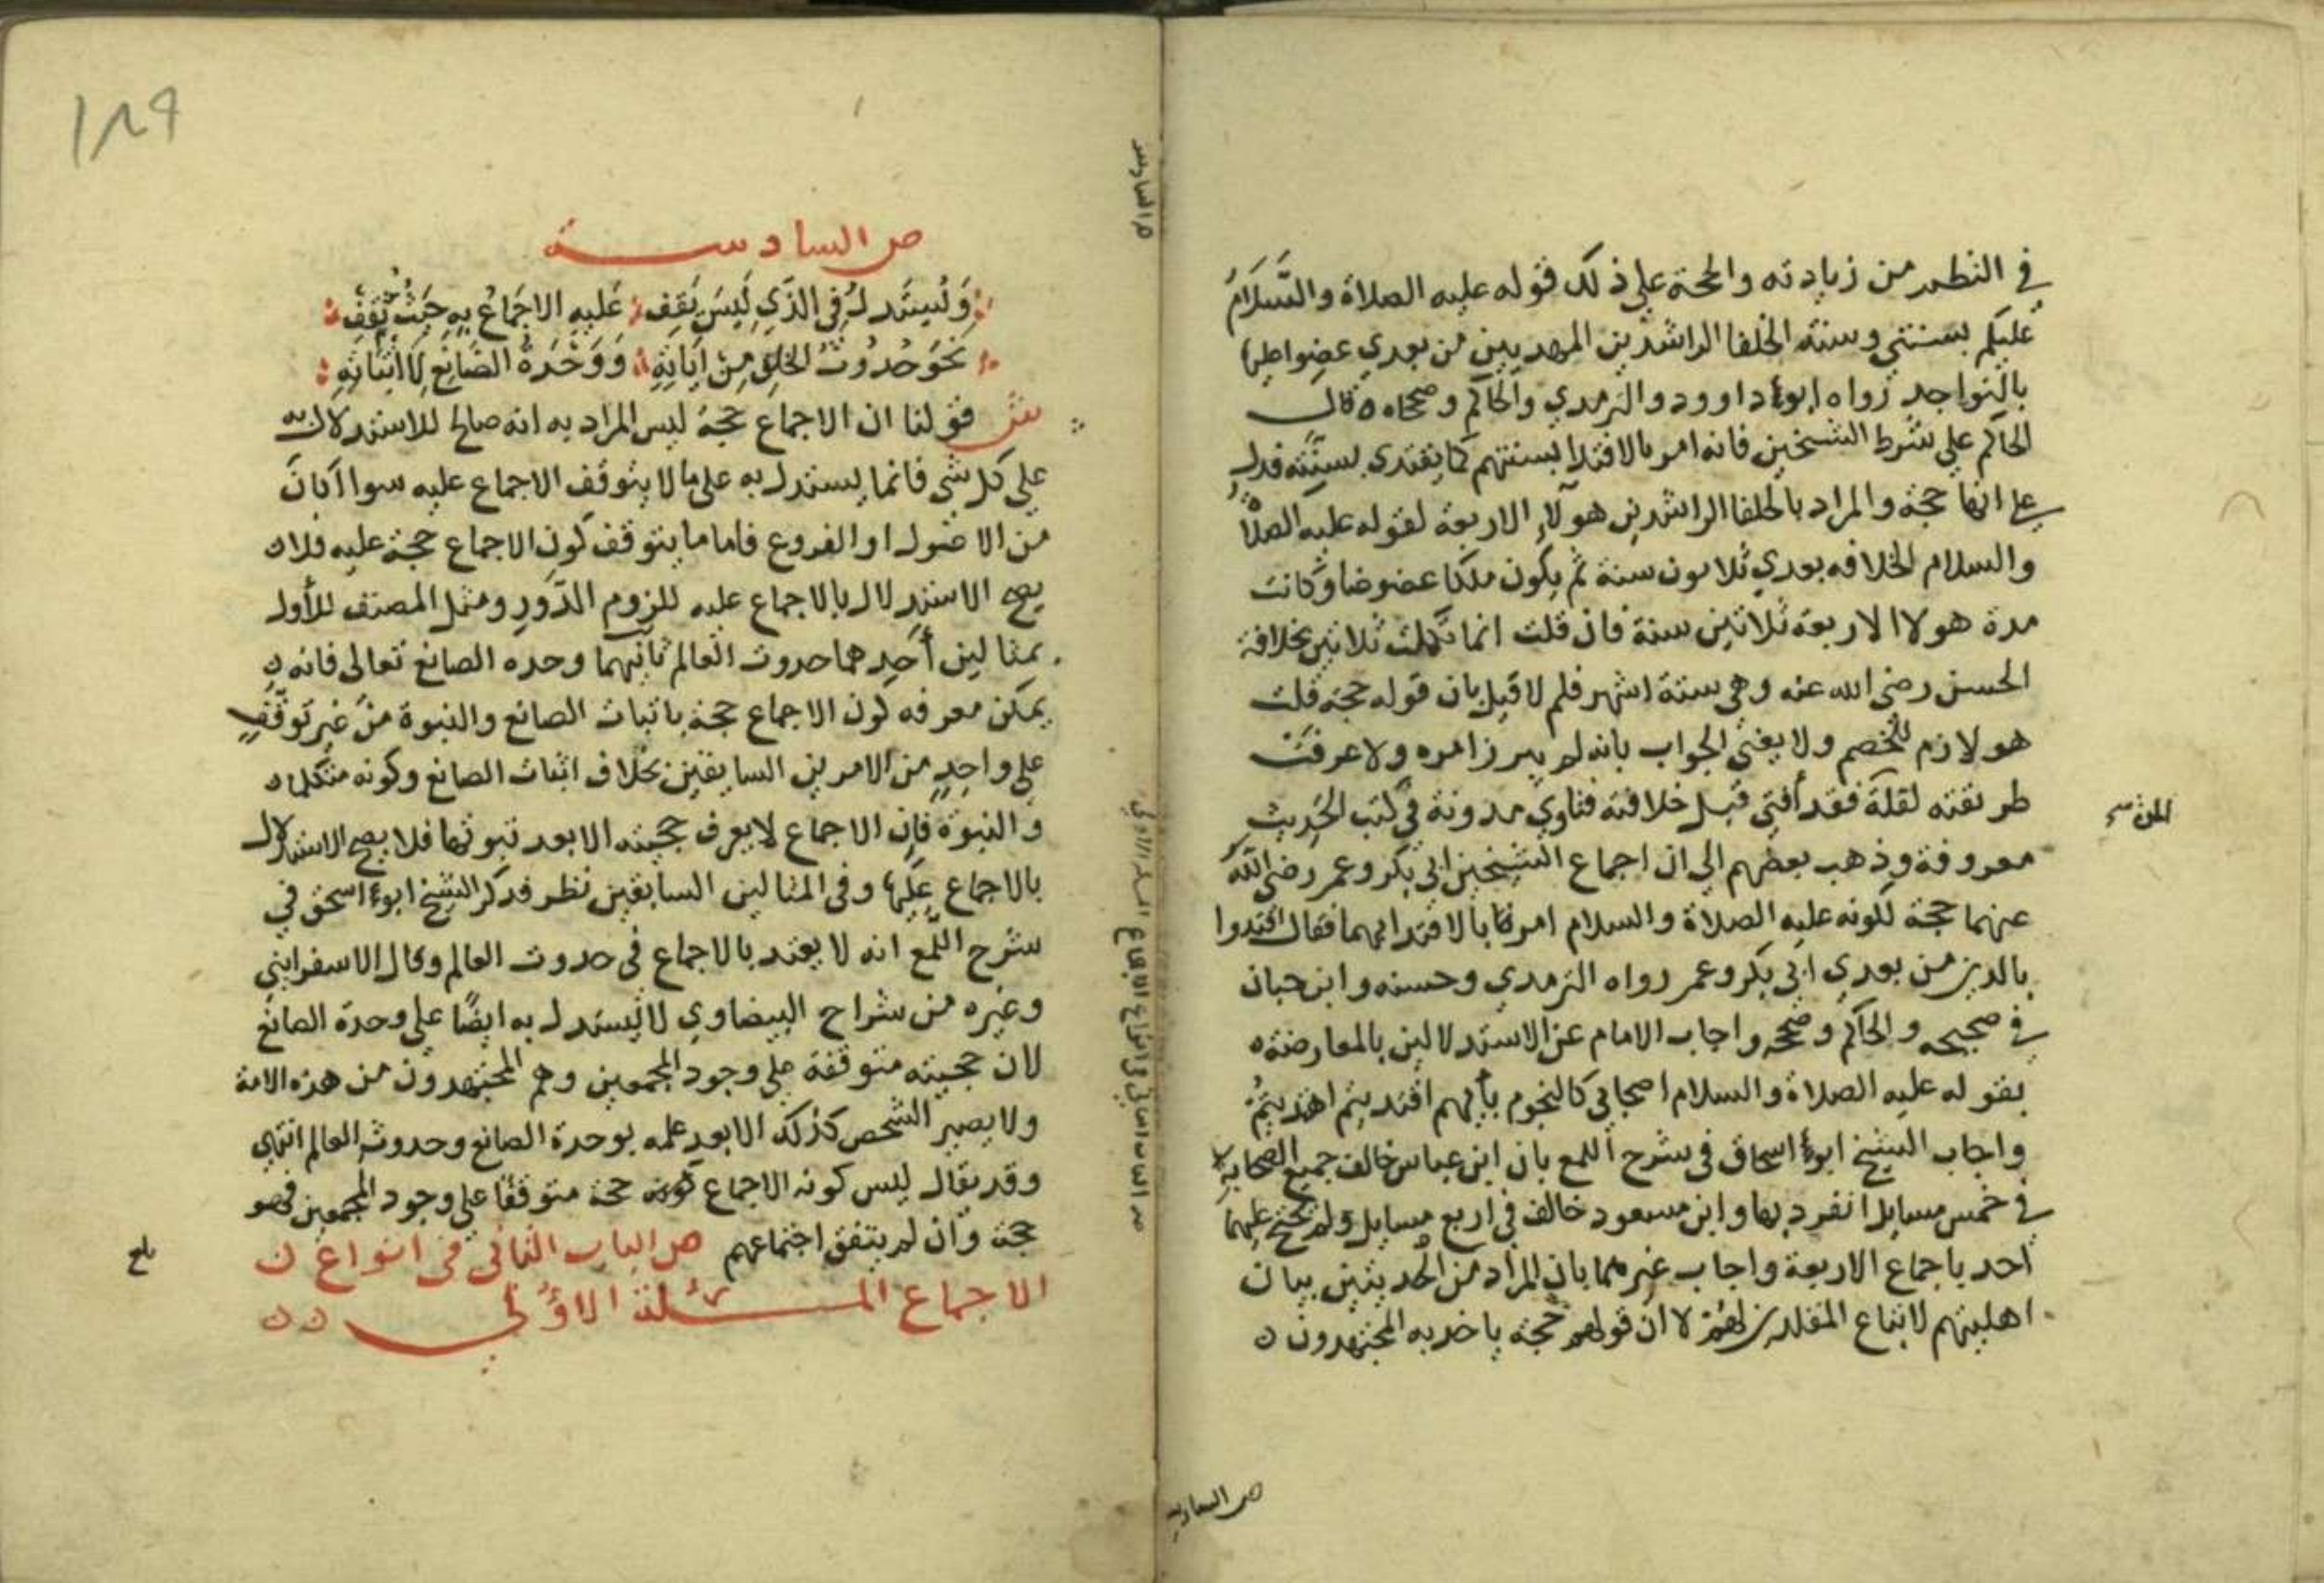 في النظم من زيادته والحجة علي ذلك قوله عليه الصلاة والسَّلَامُ
عليكم بسنتي وسنة الخلفا الراشدين المهديين من بعدي عضوا عليها
بالنواجد رواه ابوا داوود والترمدي والحاكم وصححاه قال
الحاكم علي شرط الشيخين فانه امر بالاقتدا بسنتهم كما يقتدي بسنته فدل
علي انها حجة والمراد بالخلفا الراشدين هولاء الاربعة لقوله عليه الصلاة
والسلام الخلافه بعدي ثلاثون سنة ثم يكون ملكا عضوضا وكانت
مدة هولاا الاربعة ثلاثين سنة فان قلت انما تكملت ثلاثين بخلافة
الحسن رضي الله عنه وهي ستة اشهر فلم لا قيل بان قوله حجة قلت
هو لازم للخصم ولا يغني الجواب بانه لم يبرز امره ولا عرفت
طريقته لقلة فقد أفتي قبل خلافته فتاوي مدونة في كتب الحديث
معروفة وذهب بعضهم الي ان اجماع الشيخين ابي بكر وعمر رضي الله
عنهما حجة لكونه عليه الصلاة والسلام امرنا بالاقتدا بهما فقال اقتدوا
بالدين من بعدي ابي بكر وعمر رواه الترمدي وحسنه وابن حبان
في صحيحه والحاكم وصححه واجاب الامام عن الاستدلالين بالمعارضة
بقوله عليه الصلاة والسلام اصحابي كالنجوم بأيهم اقتديتم اهتديتمُ
واجاب الشيخ ابوا اسحاق في شرح اللمع بان ابن عباس خالف جميع الصحابة
في خمس مسايل انفرد بها وابن مسعود خالف في اربع مسايل ولم يحتج عليهما
احد باجماع الاربعة واجاب غيرهما بان المراد من الحديثين بيان
اهليتهم لاتباع المقلدين لهم لا ان قولهم حجة ياخد به المجتهدون
ص السادسة
ص السادسة
وَلْيُستَدل في الذي ليس يقف عليه الاجماع به حيث ثقف
نحو حدوث الخلق من اياته ووحدة الصانع لا اثباته
ش قولنا ان الاجماع حجة ليس المراد به انه صالح للاستدلال به
علي كل شي فانما يستدل به علي ما لا يتوقف الاجماع عليه سوا اكان
من الاصول او الفروع فاما ما يتوقف كون الاجماع حجة عليه فلا
يصح الاستدلال بالاجماع عليه للزوم الدَّورِ ومثل المصنف للأول
بمثالين أحدهما حدوث العالم ثانيهما وحده الصانع تعالى فانه
يمكن معرفه كون الاجماع حجة باثبات الصانع والنبوة من غير توقف
علي واحدٍ من الامرين السابقين بخلاف اثبات الصانع وكونه متكلما
والنبوة فإن الاجماع لا يعرف حجيته الا بعد ثبوتها فلا يصح الاستدلال
بالاجماع عليها وفي المثالين السابقين نظر فدكر الشيخ ابوا اسحق في
شرح اللمع انه لا يعتد بالاجماع في حدوث العالم وقال الاسفرايني
وغيره من شراح البيضاوي لا يُستدل به ايضًا علي وحدة الصانع
لان حجيته متوقفة علي وجود المجمعين وهم المجتهدون من هذه الامة
ولا يصير الشخص كذلك الا بعد علمه بوحدة الصانع وحدوث العالم انتهي
وقد يقال ليس كونه الاجماع حجة متوقفا علي وجود المجمعين فهو
حجة وان لم يتفق اجتماعهم ص الباب الثاني في انواع
الاجماع المسئلة الاولي
بلغ
١٨٩